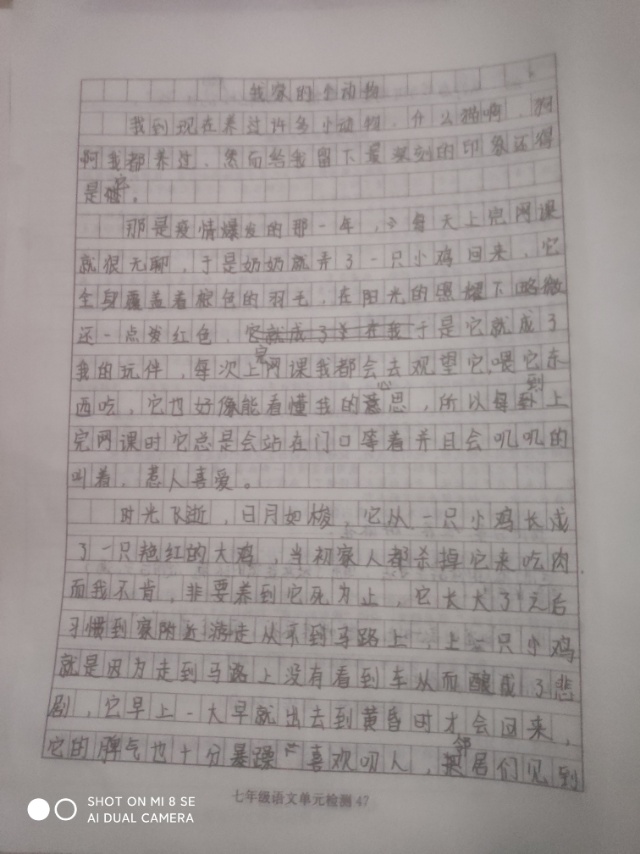 我家的小动物
我到现在养过许多小动物,什么猫啊,狗
啊我都养过,然而给我留下最深刻的印象还得
是它。
那是疫情爆发的那一年,每天上完网课
就很无聊,于是奶奶就弄了一只小鸡回来,它
全身覆盖着棕色的羽毛,在阳光的照耀下略微
还一点发红色,于是它就成了
我的玩伴,每次上完网课我都会去观望它喂它东
西吃,它也好像能看懂我的心思,所以每到上
完网课时它总是会站在门口等着并且会叽叽的
叫着,惹人喜爱。
时光飞逝,日月如梭,它从一只小鸡长成
了一只艳红的大鸡,当初家人都杀掉它来吃肉
而我不肯,非要养到它死为止,它长大了之后
习惯到家附近游走从不到马路上,上一只小鸡
就是因为走到马路上没有看到车从而酿成了悲
剧,它早上一大早就出去到黄昏时才会回来,
它的脾气也十分暴躁喜欢叨人,邻居们见到
七年级语文单元检测 47
SHOT ON MI 8 SE
AI DUAL CAMERA